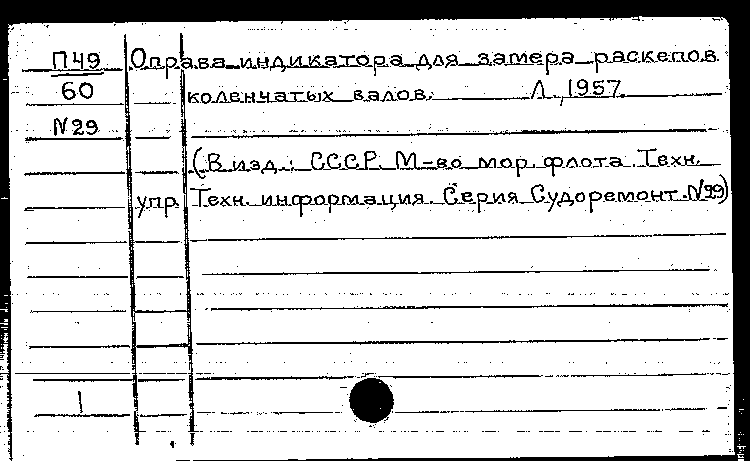 П49 Оправа индикатора для замера раскепов
60 коленчатых валов. Л., 1957.
N29
(В изд.: СССР. М-во мор. флота. Техн.
упр. Техн. информация. Серия Судоремонт. N29)
1